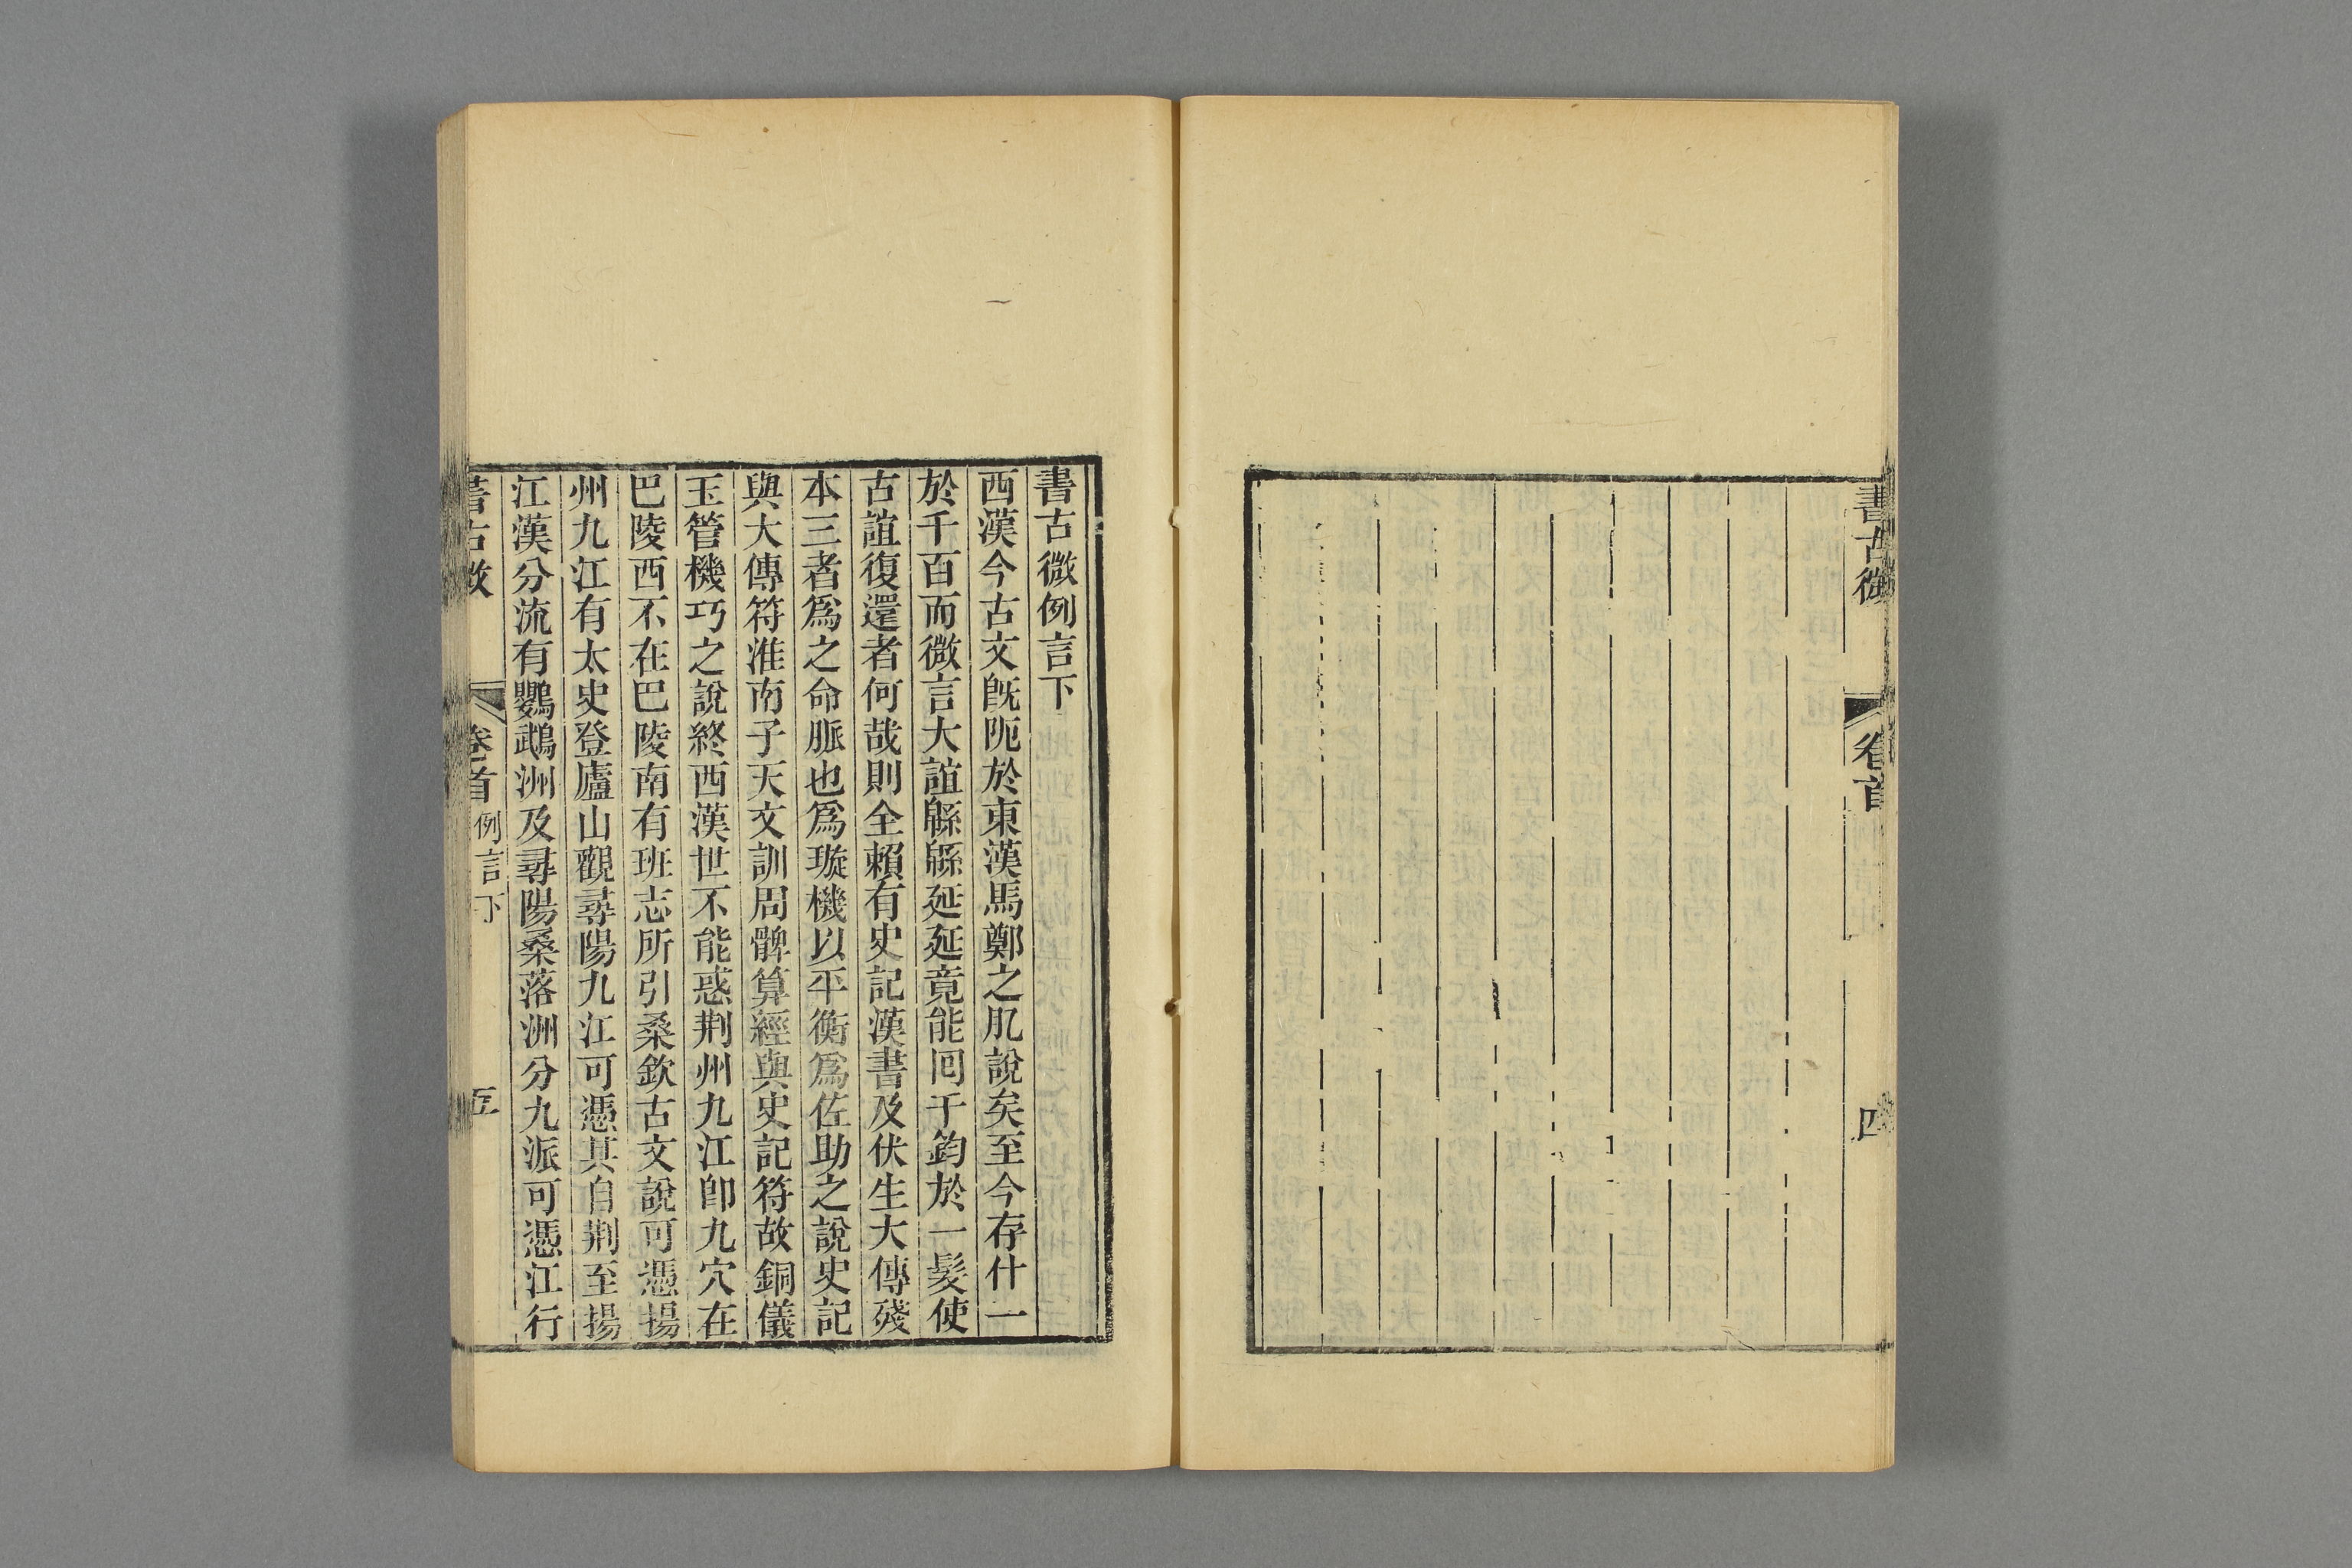 書古微
卷首
四
書古微例言下
西漢今古文既阨於東漢馬鄭之肊說矣至今存什一
於千百而微言大誼緜緜延延竟能囘千鈞於一髮使
古誼復還者何哉則全賴有史記漢書及伏生大傳殘
本三者爲之命脈也爲璇機以平衡爲佐助之說史記
與大傳符淮南子天文訓周髀算經與史記符故銅儀
玉管機巧之說終西漢世不能惑荆州九江卽九穴在
巴陵西不在巴陵南有班志所引桑欽古文說可憑揚
州九江有太史登廬山觀尋陽九江可憑其自荆至揚
江漢分流有鸚鵡洲及尋陽桑落洲分九派可憑江行
書古微
卷首
例言下
五